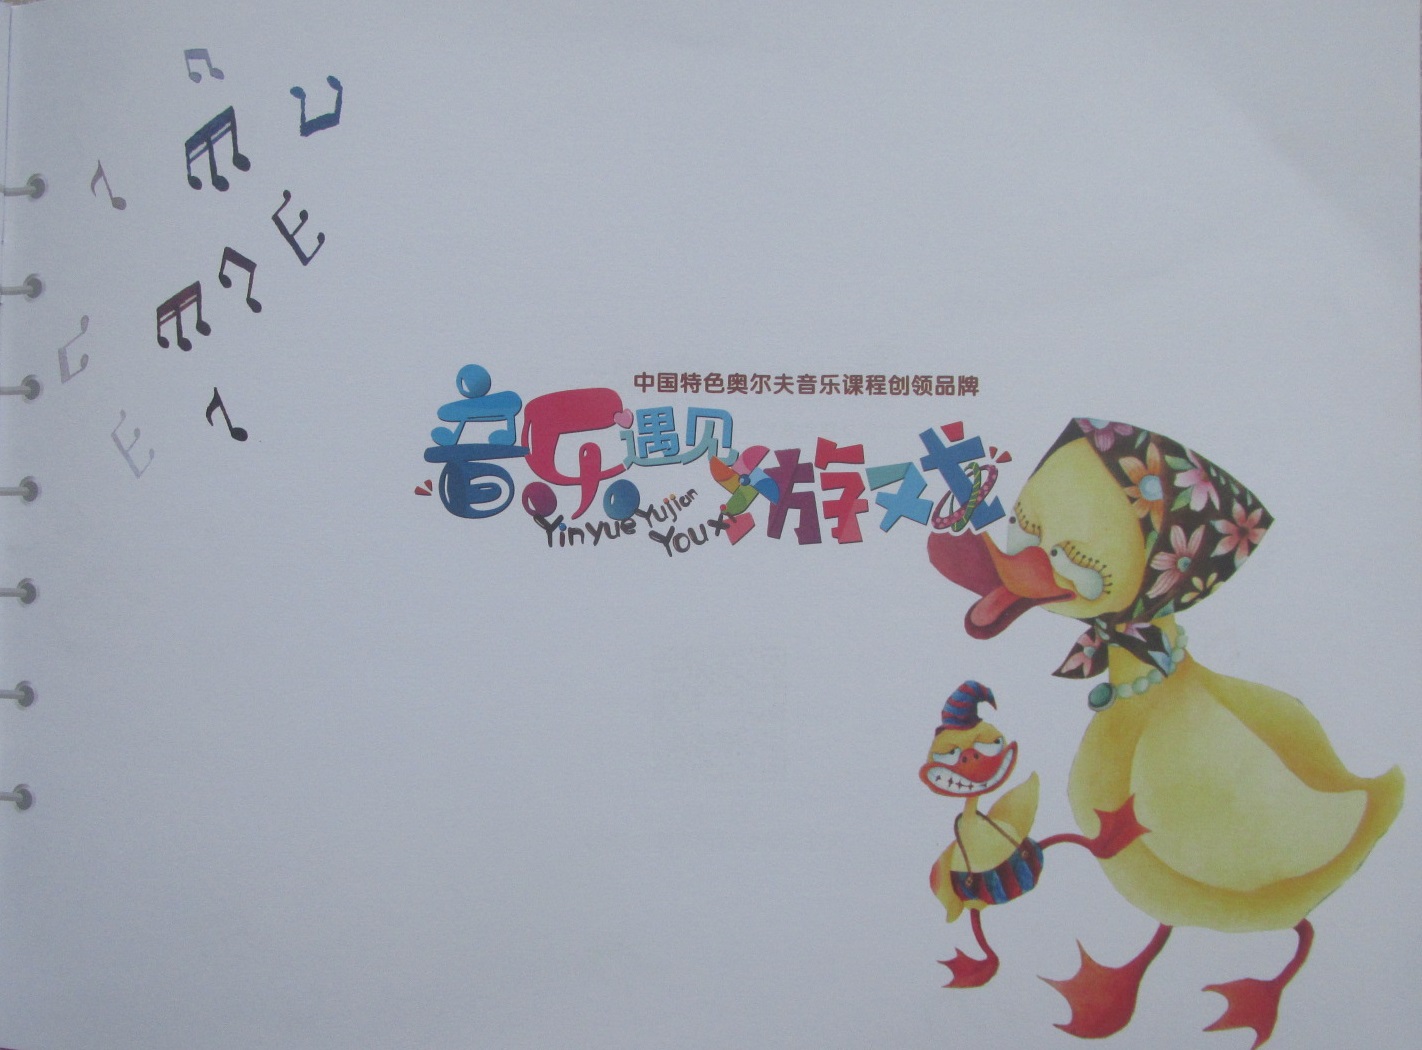 中国特色奥尔夫音乐课程创领品牌
音乐遇见游戏
Yinyue Yujian
You xi